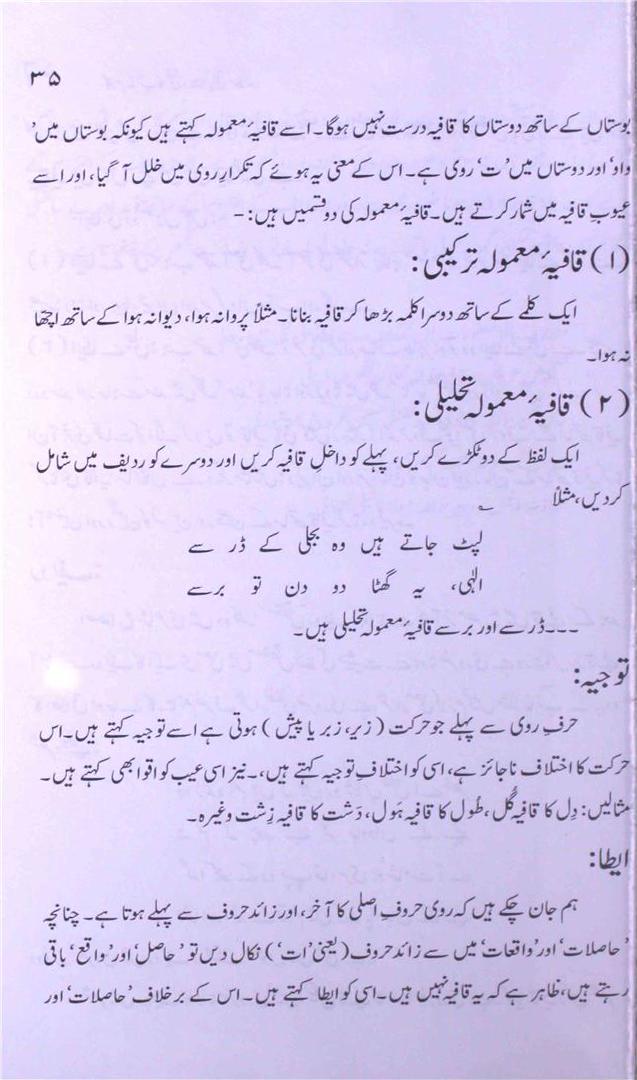 ۳۵
بوستاں کے ساتھ دوستاں کا قافیہ درست نہیں ہوگا۔ اسے قافیۂ معمولہ کہتے ہیں کیونکہ بوستاں میں ’
واو‘ اور دوستاں میں ’ت‘ روی ہے۔ اس کے معنی یہ ہوئے کہ تکرارِ روی میں خلل آ گیا، اور اسے
عیوبِ قافیہ میں شمار کرتے ہیں۔ قافیۂ معمولہ کی دو قسمیں ہیں:۔
(۱) قافیۂ معمولہ ترکیبی:
ایک کلمے کے ساتھ دوسرا کلمہ بڑھا کر قافیہ بنانا۔ مثلاً پروانہ ہوا، دیوانہ ہوا کے ساتھ اچھا
نہ ہوا۔
(۲) قافیۂ معمولہ تحلیلی:
ایک لفظ کے دو ٹکڑے کریں، پہلے کو داخلِ قافیہ کریں اور دوسرے کو ردیف میں شامل
کردیں، مثلاً ؎
لپٹ جاتے ہیں وہ بجلی کے ڈر سے
الٰہی، یہ گھٹا دو دن تو برسے
۔۔۔ڈر سے اور برسے قافیۂ معمولہ تحلیلی ہیں۔
توجیہ:
حرفِ روی سے پہلے جو حرکت (زیر، زبر یا پیش) ہوتی ہے اسے توجیہ کہتے ہیں۔ اس
حرکت کا اختلاف ناجائز ہے، اسی کو اختلافِ توجیہ کہتے ہیں،۔ نیز اسی عیب کو اقوا بھی کہتے ہیں۔
مثالیں: دِل کا قافیہ گُل، طُول کا قافیہ ہَول، دَشت کا قافیہ زِشت وغیرہ۔
ایطا:
ہم جان چکے ہیں کہ روی حروفِ اصلی کا آخر، اور زائد حروف سے پہلے ہوتا ہے۔ چنانچہ
’حاصلات‘ اور ’واقعات‘ میں سے زائد حروف (یعنی ’ات‘) نکال دیں تو ’حاصل‘ اور ’واقع‘ باقی
رہتے ہیں، ظاہر ہے کہ یہ قافیہ نہیں ہیں۔ اسی کو ایطا کہتے ہیں۔ اس کے برخلاف ’حاصلات‘ اور